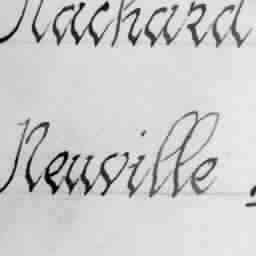 Rachard
Neuville